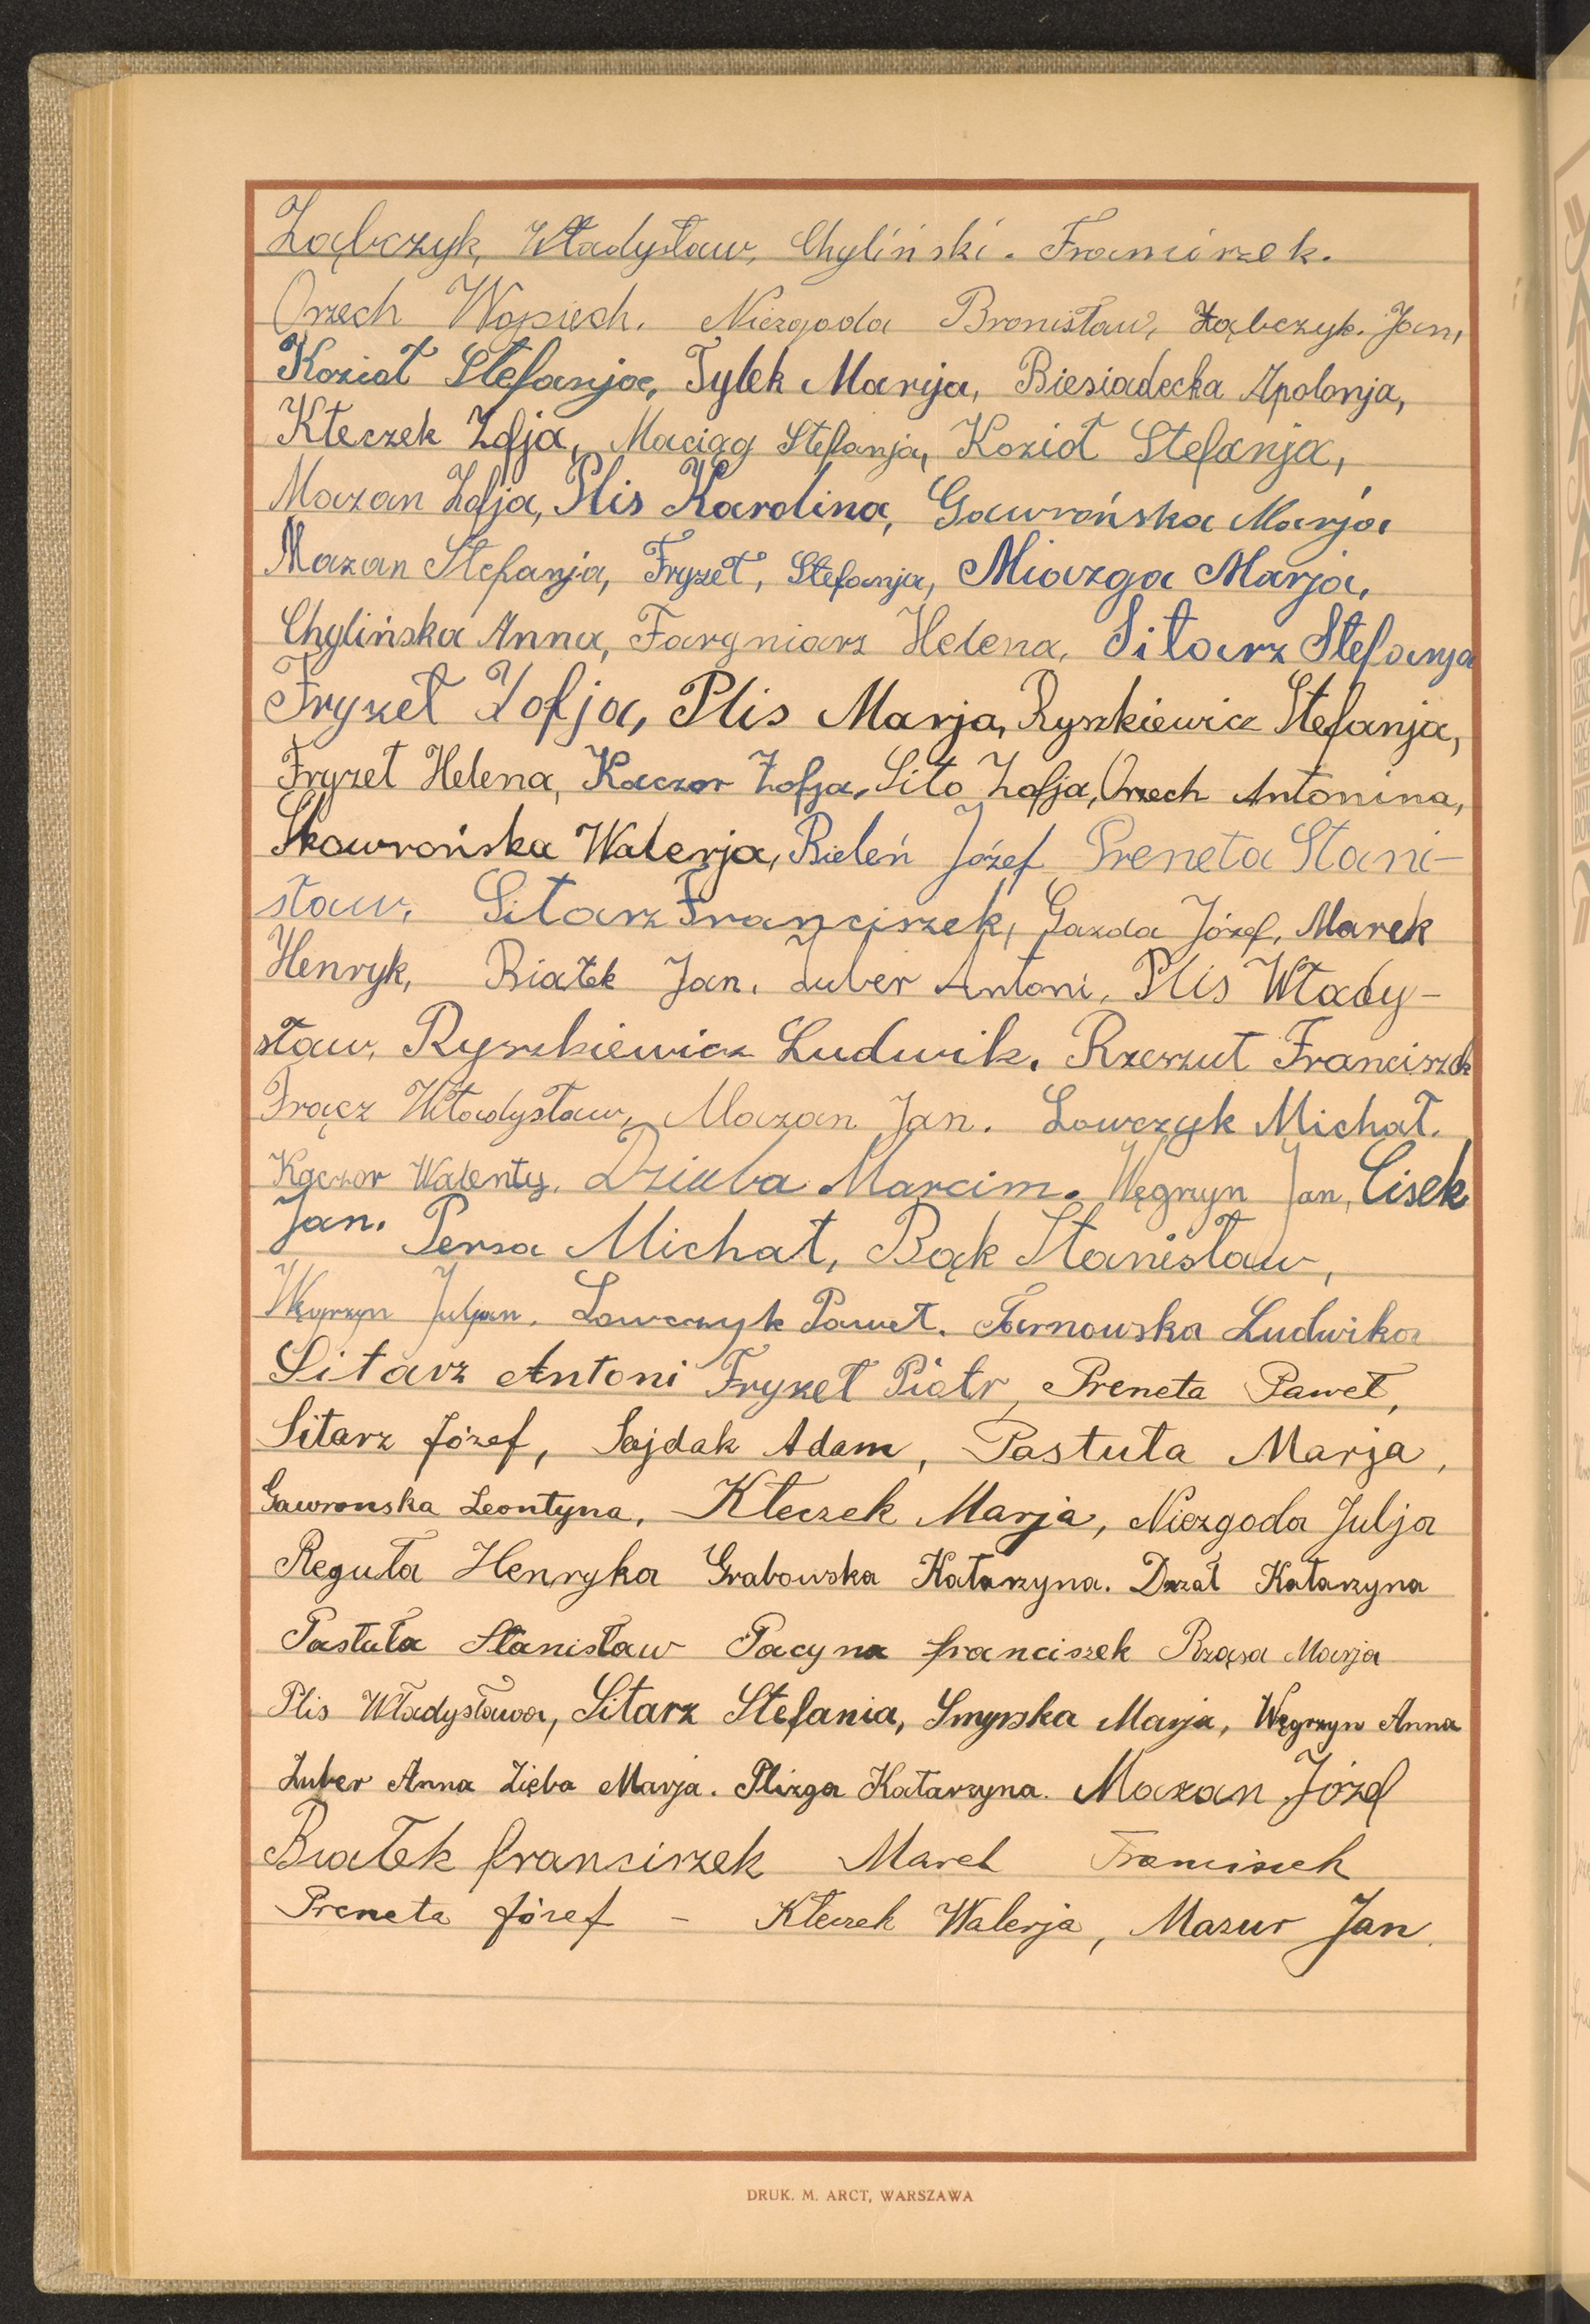 Ząbczyk, Władysław, Chyliński. Franciszek.
Orzech Wojciech. Niezgoda Bronisław, Ząbczyk. Jan,
Kozioł Stefanja, Tylek Marija, Biesiadecka Apolonja,
Kłeczek Zofja, Maciąg Stefanja, Kozioł Stefanja,
Mazan Zofja, Plis Karolina, Gawrońska Marja
Mazan Stefanja, Fryzeł, Stefanja, Miazga Marja,
Chylińska Anna, Fargniarz Helena, Sitarz Stefanja
Fryzeł Zofja, Plis Marja, Ryszkiewicz Stefanja,
Fryzeł Helena, Kaczor Zofja, Sito Zofja, Orzech Antonina,
Skowrońska Walerja, Bieleń Józef Preneta Stani-
sław, Sitarz Franciszek, Gazda Józef, Marek
Henryk, Białek Jan. Zuber Antoni, Plis Włady-
sław, Ryszkiewicz Ludwik. Rzeszut Franciszek
Frącz Władysław, Mazan Jan. Lowczyk Michał.
Kaczor Walenty. Dziuba Marcim. Węgrzyn Jan, Cisek
Jan. Persa Michał, Bąk Stanisław,
Węgrzyn Juljan. Lowczyk Paweł. Tarnowska Ludwika
Sitarz Antoni Fryzeł Piotr, Preneta Paweł,
Sitarz Józef, Sajdak Adam, Pastuła Marja,
Gawronska Leontyna, Kłeczek Marja, Niezgoda Julja
Reguła Henryka Grabowska Katarzyna. Drzał Katarzyna
Pastuła Stanisław Pacyna Franciszek Rząsa Marja
Plis Władysława, Sitarz Stefania, Smyrska Marja, Węgrzyn Anna
Zuber Anna Zięba Marja. Plizga Katarzyna. Mazan Józef
Białek Franciszek Marek Franciszek
Preneta Józef - Kłeczek Walerja, Mazur Jan.
DRUK. M. ARCT, WARSZAWA